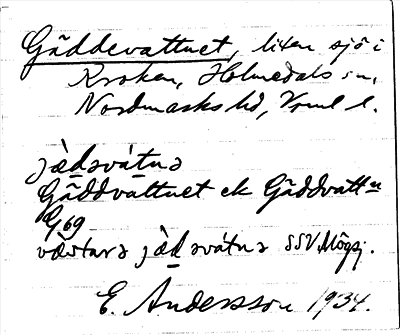 Gäddevattnet, liten sjö i
Kroken, Holmedals sn,
Nordmarks hd, Vrml l.
jàd̲əvát̲nə
Gäddvattnet ek Gäddvattn
G 69
vàstarə jàd̲əvátnə SSV Högsj.
E. Andersson 1934.